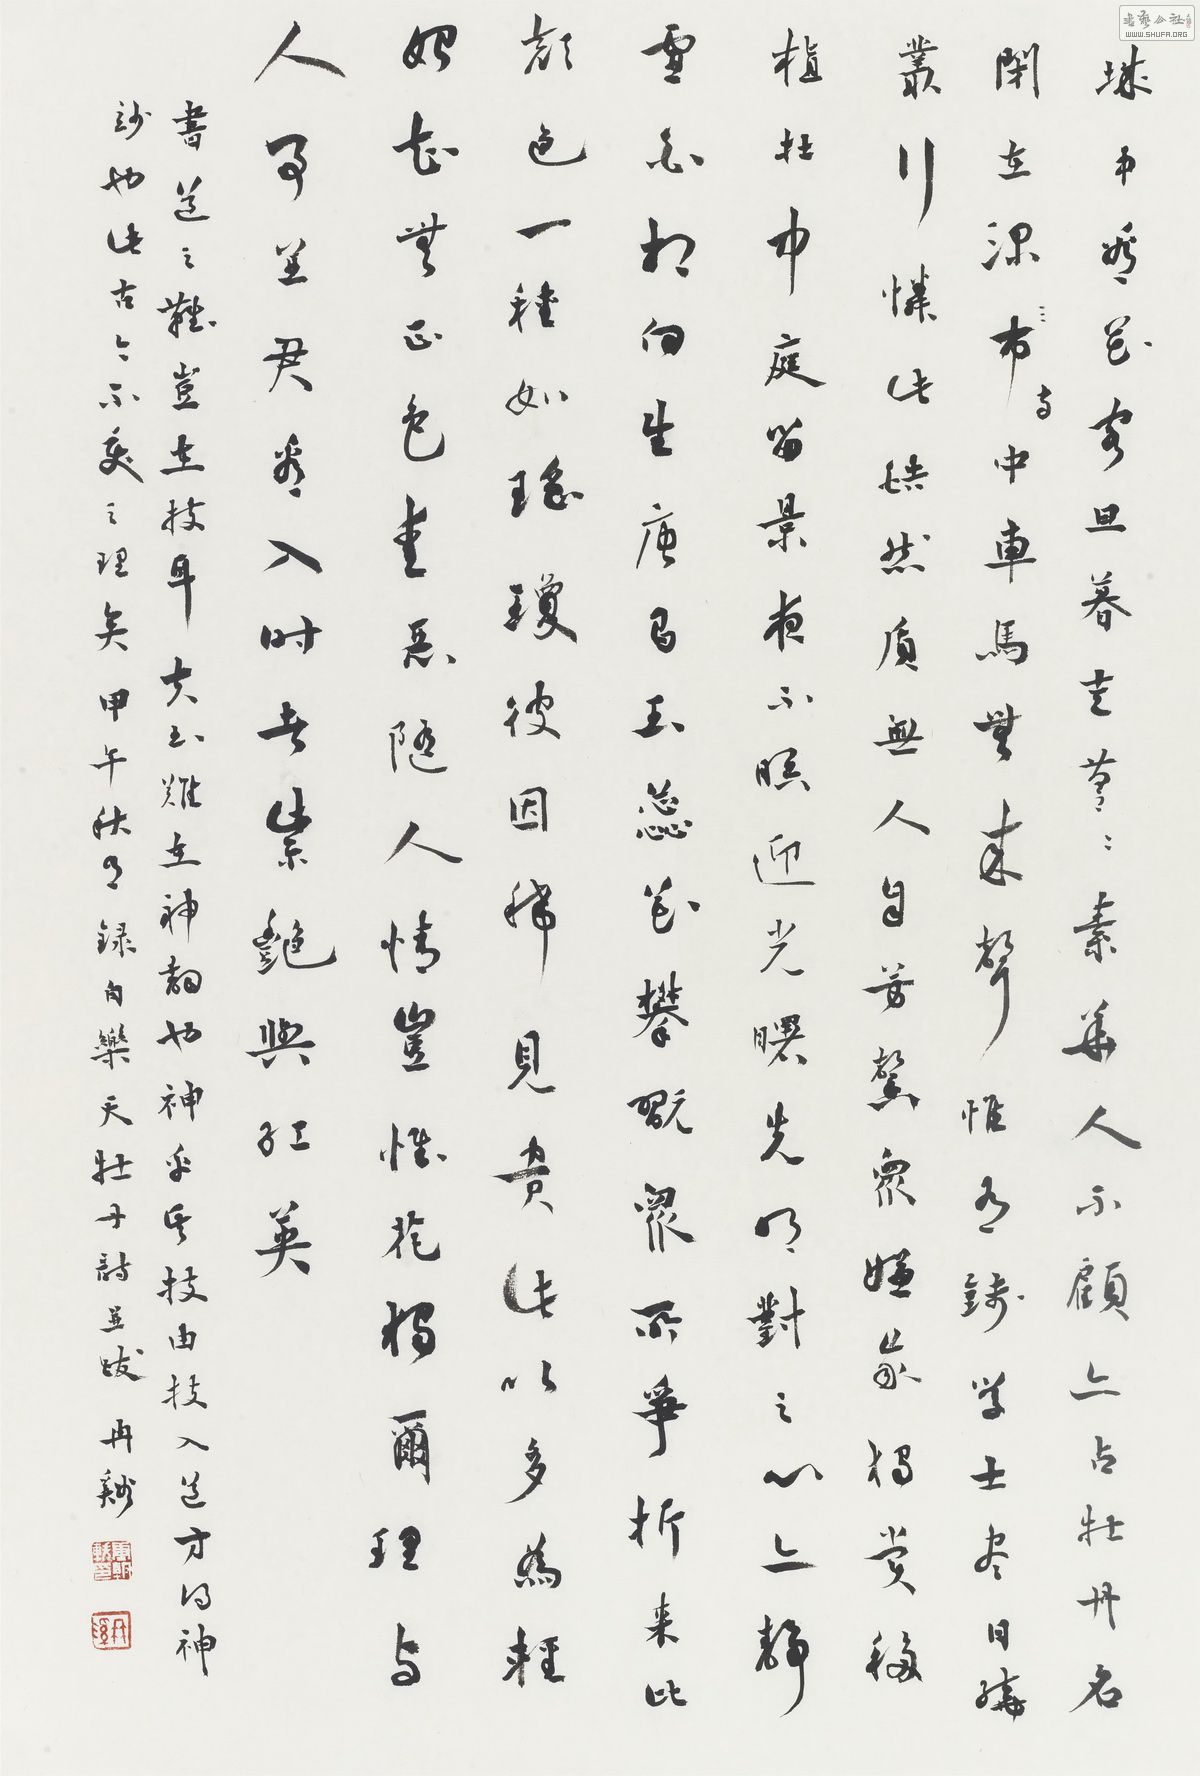 城中看花客旦暮走營々素華人不顧亦占牡丹名
閑在深市中車馬無來聲惟有錢學士盡日繞
叢行憐此皓然質無人自芳馨眾嫌我獨賞移
植在中庭留景夜不暝迎光曙先明對之心亦靜
虛白相向生唐昌玉蕊花攀翫眾所爭折來比
顏色一種如瑤瓊彼因稀見貴此以多為輕
始知無正色愛惡隨人情豈惟花獨爾理與
人事並君看入時者紫艷與紅英
寺
書道之難豈在技耳夫至難在神韻也神乎其技由技入道方得神
妙也此古今不變之理矣甲午秋月錄白樂天牡丹詩並跋冉谿
書藝公社
WWW.SHUFA.ORG